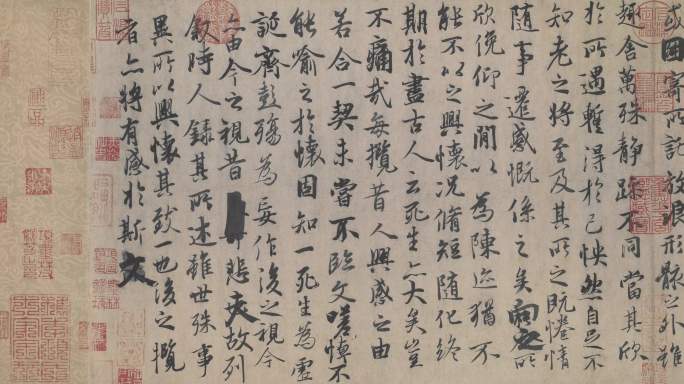 或因寄所託放浪形骸之外雖
趣舍萬殊静躁不同當其欣
於所遇蹔得於己怏然自足不
知老之將至及其所之既惓情
隨事遷感慨係之矣向之所
欣俛仰之閒以為陳迹猶不
能不以之興懷況脩短隨化終
期於盡古人云死生亦大矣豈
不痛哉每攬昔人興感之由
若合一契未嘗不臨文嗟悼不
能喻之於懷固知一死生為虛
誕齊彭殤為妄作後之視今
亦由今之視昔悲夫故列
敘時人錄其所述雖世殊事
異所以興懷其致一也後之攬
者亦將有感於斯文